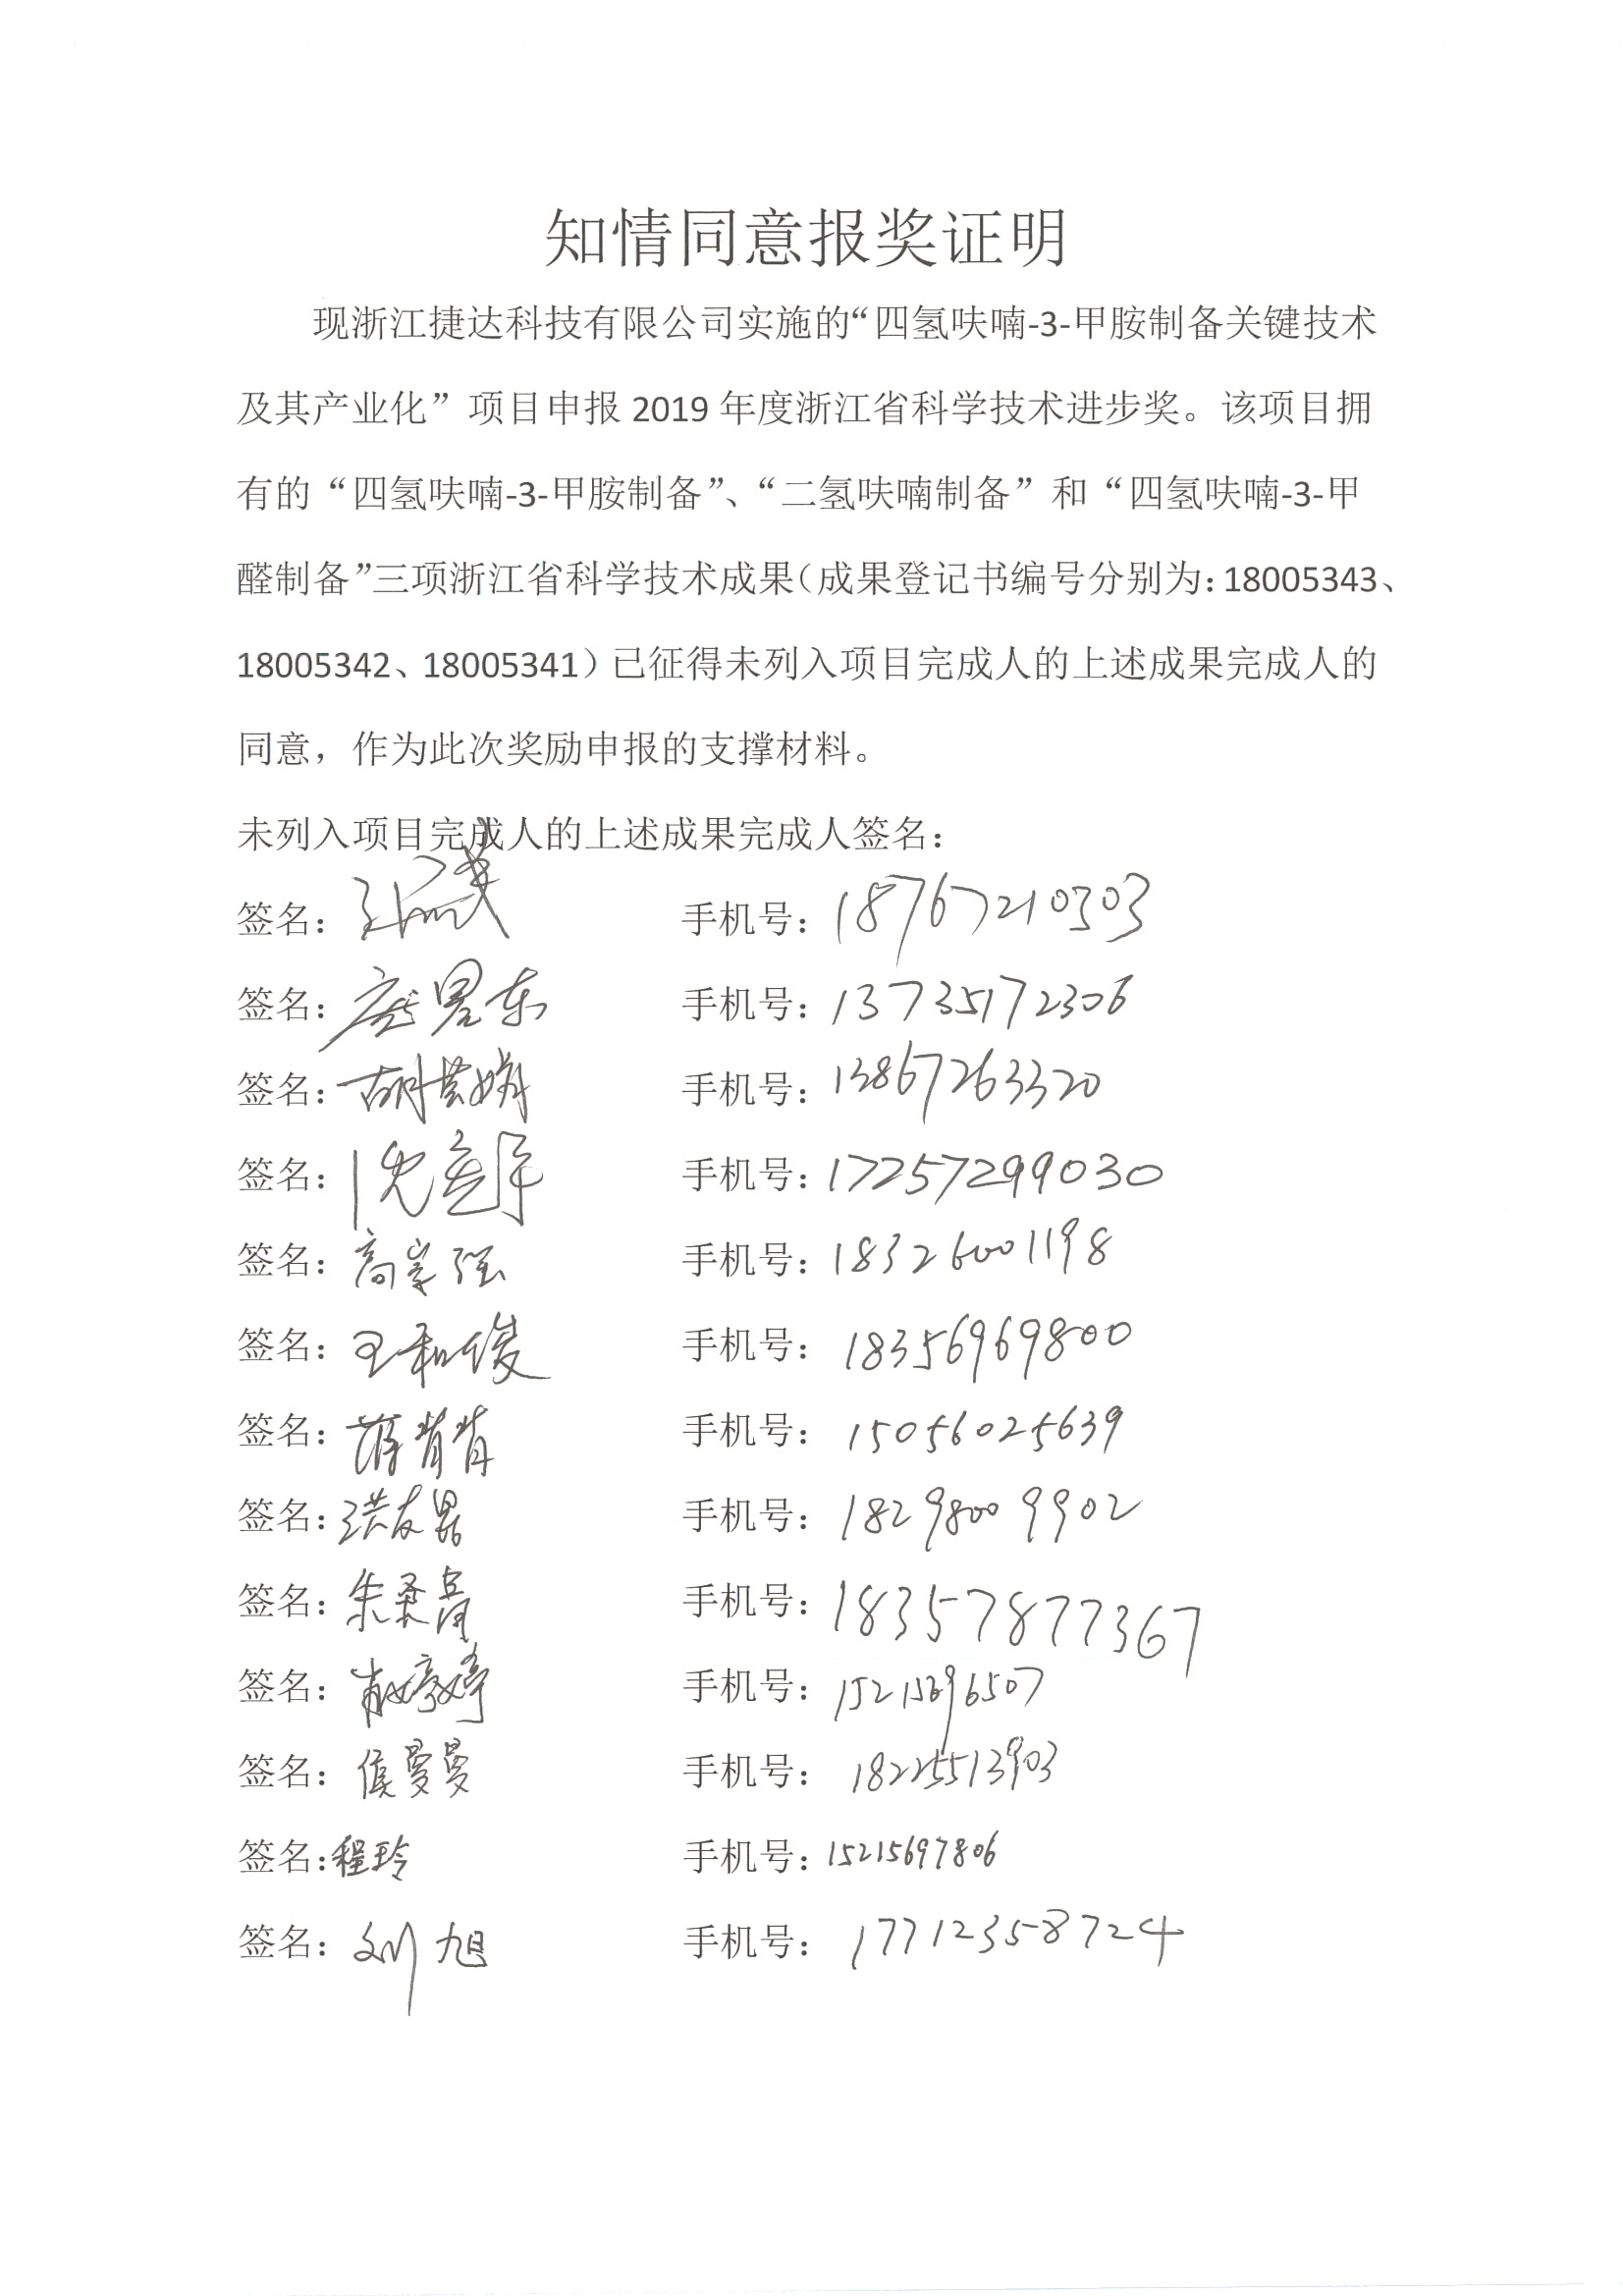 知情同意报奖证明
现浙江捷达科技有限公司实施的“四氢呋喃-3-甲胺制备关键技术
及其产业化”项目申报 2019 年度浙江省科学技术进步奖。该项目拥
有的“四氢呋喃-3-甲胺制备”、“二氢呋喃制备”和“四氢呋喃-3-甲
醛制备”三项浙江省科学技术成果（成果登记书编号分别为：18005343、
18005342、18005341）已征得未列入项目完成人的上述成果完成人的
同意，作为此次奖励申报的支撑材料。
未列入项目完成人的上述成果完成人签名：
签名： 手机号：18767210303
签名： 手机号：13735172306
签名：胡芸娟 手机号：13867263320
签名： 手机号：17257299030
签名：高家强 手机号：18326001198
签名：王和俊 手机号：18356969800
签名：薛背背 手机号：15056025639
签名：洪友鼎 手机号：18298009902
签名：朱桑青 手机号：18357877367
签名：肖婷婷 手机号：15215696507
签名：侯曼曼 手机号：18225513903
签名：程玲 手机号：15215697806
签名：刘旭 手机号：17712358724